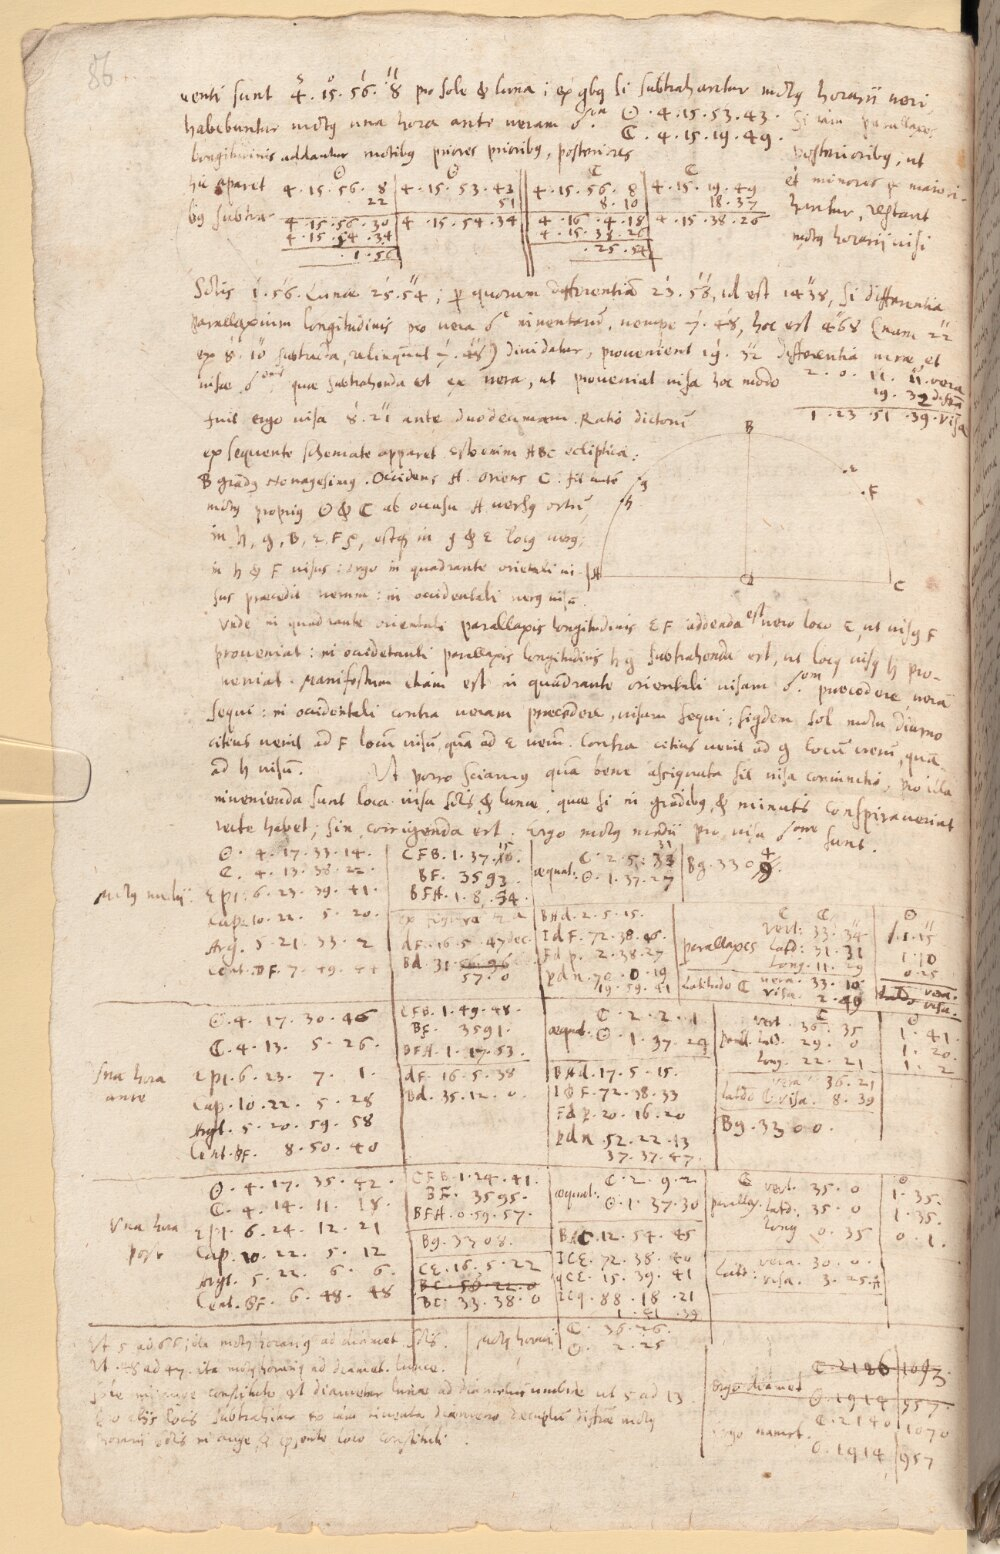 86
uenti sunt 4 . 15 . 56 . 8 pro sole & luna ; ex quibus si subtrahantur motus horarii ueri
habebuntur motus una hora ante ueram ☌ em ☉ . 4 . 15 . 53 . 43 . Si iam parallaxes
☾ . 4 . 15 . 19 . 49 .
longitudinis addantur motibus priores prioribus, posteriores posterioribus, ut
hic apparet et minores ex maiori-
bus subtra- hantur, restant
motus horarii uisi
☉ ☾ ☾
4 . 15 . 56 . 8 | 4 . 15 . 53 . 43 | 4 . 15 . 56 . 8 | 4 . 15 . 19 . 49
22 | 51 | 8 . 10 | 18 . 37
4 . 15 . 56 . 30 | 4 . 15 . 54 . 34 | 4 . 16 . 4 . 18 | 4 . 15 . 38 . 26
4 . 15 . 54 . 34 | 4 . 15 . 38 . 26
. 1 . 56 | . 25 . 54
Solis 1 . 56 . Lunae 25 . 54 ; per quorum differentiam 23 . 58, id est 1438, si differentia
parallaxium longitudinis pro uera ☌ e inuentarum, nempe 7 . 48, hoc est 468 (nam 22
ex 8 . 10 subtracta, relinquunt 7 . 48) diuidatur, prouenient 19 . 32 differentia uerae et
uisae ☌ quae subtrahenda est ex uera, ut proueniat uisa hoc modo 2 . 0 . 11 . 11 . uera
19 . 32 differentia
1 . 23 . 51 . 39 . uisa
fuit ergo uisa 8 . 21 ante duodecimam . Ratio dictorum
ex sequente schemate apparet . Esto enim ABC ecliptica ;
B gradus nonagesimus . Occidens A . oriens C : sit autem
motus proprius ☉ & ☾ ab occasu A uersus ortum
in h, g, B, E, F
in h & F uisus : ergo in quadrante orientali ui-
sus praecedit uerum : in occidentali uerus uisum .
B
g
h
F
A
d
C
Vnde in quadrante orientali parallaxis longitudinis EF addenda est uero loco E, ut uisus F
proueniat : in occidentali parallaxis longitudinis hg subtrahenda est, ut locus uisus h pro-
ueniat . Manifestum etiam est in quadrante orientali uisam ☌ em praecedere, ueram
sequi : in occidentali contra ueram praecedere, uisam sequi ; siquidem sol motu diurno
citius uenit ad F locum uisum, quam ad E uerum . Contra citius uenit ad g locum uerum, quam
ad h uisum . Ut porro sciamus quam bene assignata sit uisa coniunctio, pro illa
inuenienda sunt loca uisa solis & lunae, quae si in gradibus & minutis conspirauerint
recte habet ; sin, corrigenda est . Ergo motus medii pro uisa ☌ one sunt .
Motus medii
☉ . 4 . 17 . 33 . 14 .
☾ . 4 . 13 . 38 . 22 .
6 . 23 . 39 . 41 .
Cap . 10 . 22 . 5 . 20 .
Arg . 5 . 21 . 33 . 2
CFB . 1 . 37 .
BF . 3593
BFA . 1 . 8 . 54 .
dF . 16 . 5 . 47 dec
Bd . 31 .
57 . 0
aequat . ☾ . 2 . 5 . 33
☉ . 1 . 37 . 27
Bg . 330
BAd . 2 . 5 . 15 .
IdF . 72 . 38 . 46 .
Fdp . 2 . 38 . 27
pdn . 70 . 0 . 19
19 . 59 . 41
parallaxes
☾ ☾ ☉
vert : 33 . 34 | 1 . 15
latd : 31 . 31 | 1 . 10
long . 11 . 29 | 0 . 25
Latitudo ☾ uera . 33 . 10
visa . 2 .
Latdo uera .
visa .
Vna hora
ante
☉ . 4 . 17 . 30 . 46
☾ . 4 . 13 . 5 . 26 .
6 . 23 . 7 . 1 .
Cap . 10 . 22 . 5 . 28
Argt . 5 . 20 . 59 . 58
Cent . BF . 8 . 50 . 40
CFB . 1 . 49 . 48 .
BF . 3591 .
BFA . 1 . 17 . 53 .
dF . 16 . 5 . 38
Bd . 35 . 12 . 0 .
aequat . ☾ . 2 . 2 . 1
☉ . 1 . 37 . 29
BAd . 17 . 5 . 15 .
IdF . 72 . 38 . 33
Fdp . 20 . 16 . 20
pdn . 52 . 22 . 13
37 . 37 . 47 .
☾ ☉
vert . 36 . 35 | 1 . 41 .
parall . latd . 29 . 0 | 1 . 20 .
long . 22 . 21 | 1 . 2
uera 36 . 21
Latdo ☾ visa . 8 . 39
Bg . 3300 .
Vna hora
post
☉ . 4 . 17 . 35 . 42 .
☾ . 4 . 14 . 11 . 18 .
6 . 24 . 12 . 21
Cap . 10 . 22 . 5 . 12
Argt . 5 . 22 . 6 . 6 .
Cent . BF . 6 . 48 . 48
CFB . 1 . 24 . 41 .
BF . 3595 .
BFA . 0 . 59 . 57 .
Bg . 3308 .
CE . 16 . 5 . 22
BC : 33 . 38 . 0
aequat . ☾ . 2 . 9 . 2
☉ . 1 . 37 . 30
12 . 54 . 45
ICE . 72 . 38 . 40
qCE . 15 . 39 . 41
ICq . 88 . 18 . 21
1 . 41 . 39
☾ ☉
vert . 35 . 0 | 1 . 35 .
parallax . latd . 35 . 0 | 1 . 35 .
long 0 . 35 | 0 . 1 .
Latd : uera . 30 . 0 .
visa . 3 . 25 . A
Ut 5 ad 66 ita motus horarius ad diamet . Solis .
Ut 48 ad 47 . ita motus horarius ad diamet . Lunae .
motus horarii ☾ . 36 . 26 .
☉ . 2 . 25
Sole in auge constituto est diameter lunae ad diametrum umbrae ut 5 ad 13 .
In aliis locis subtrahitur ex iam inuenta diametro decuplum differentiae motus
horarii solis in auge & in praesente loco constituti .
ergo diamet ☾ . 2186 | 1093
☉ . 1914 | 957 .
ergo ☾ . 2140 | 1070
☉ . 1914 | 957